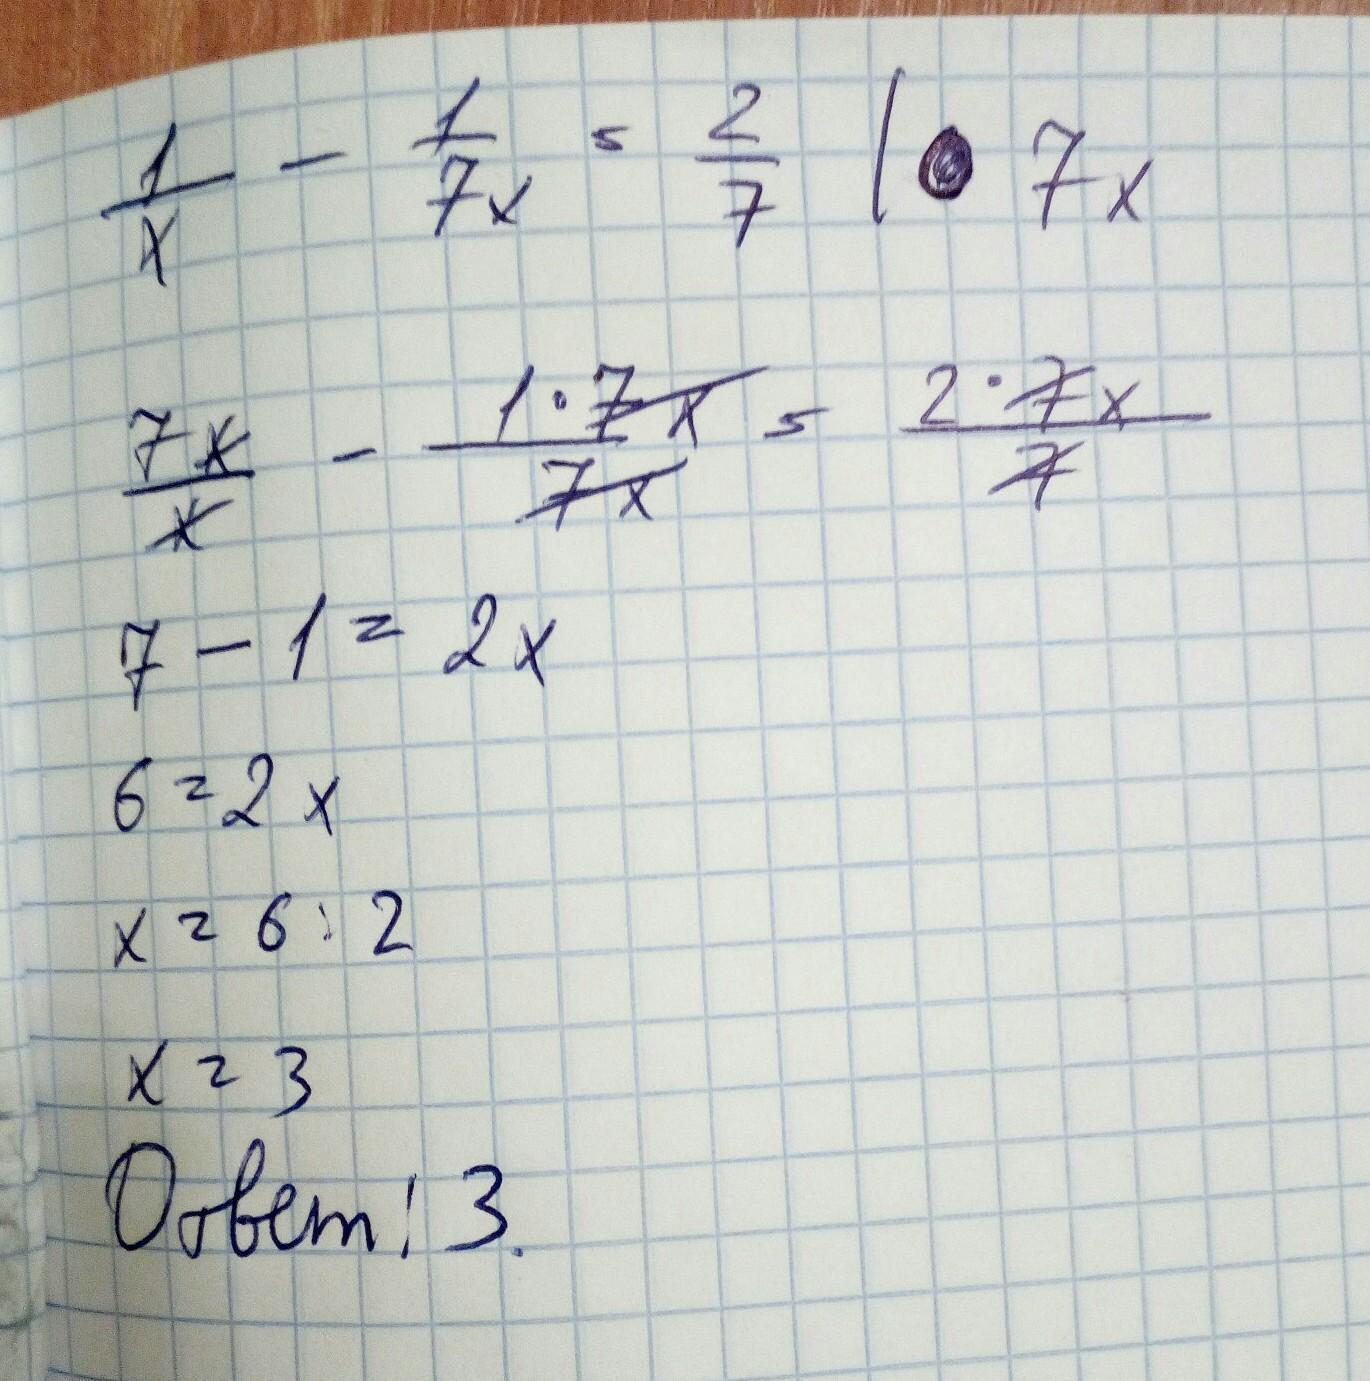 1/x - 1/7x = 2/7 | • 7x
7x/x - 1·7x/7x = 2·7x/7
7 - 1 = 2x
6 = 2x
x = 6 : 2
x = 3
Ответ: 3.